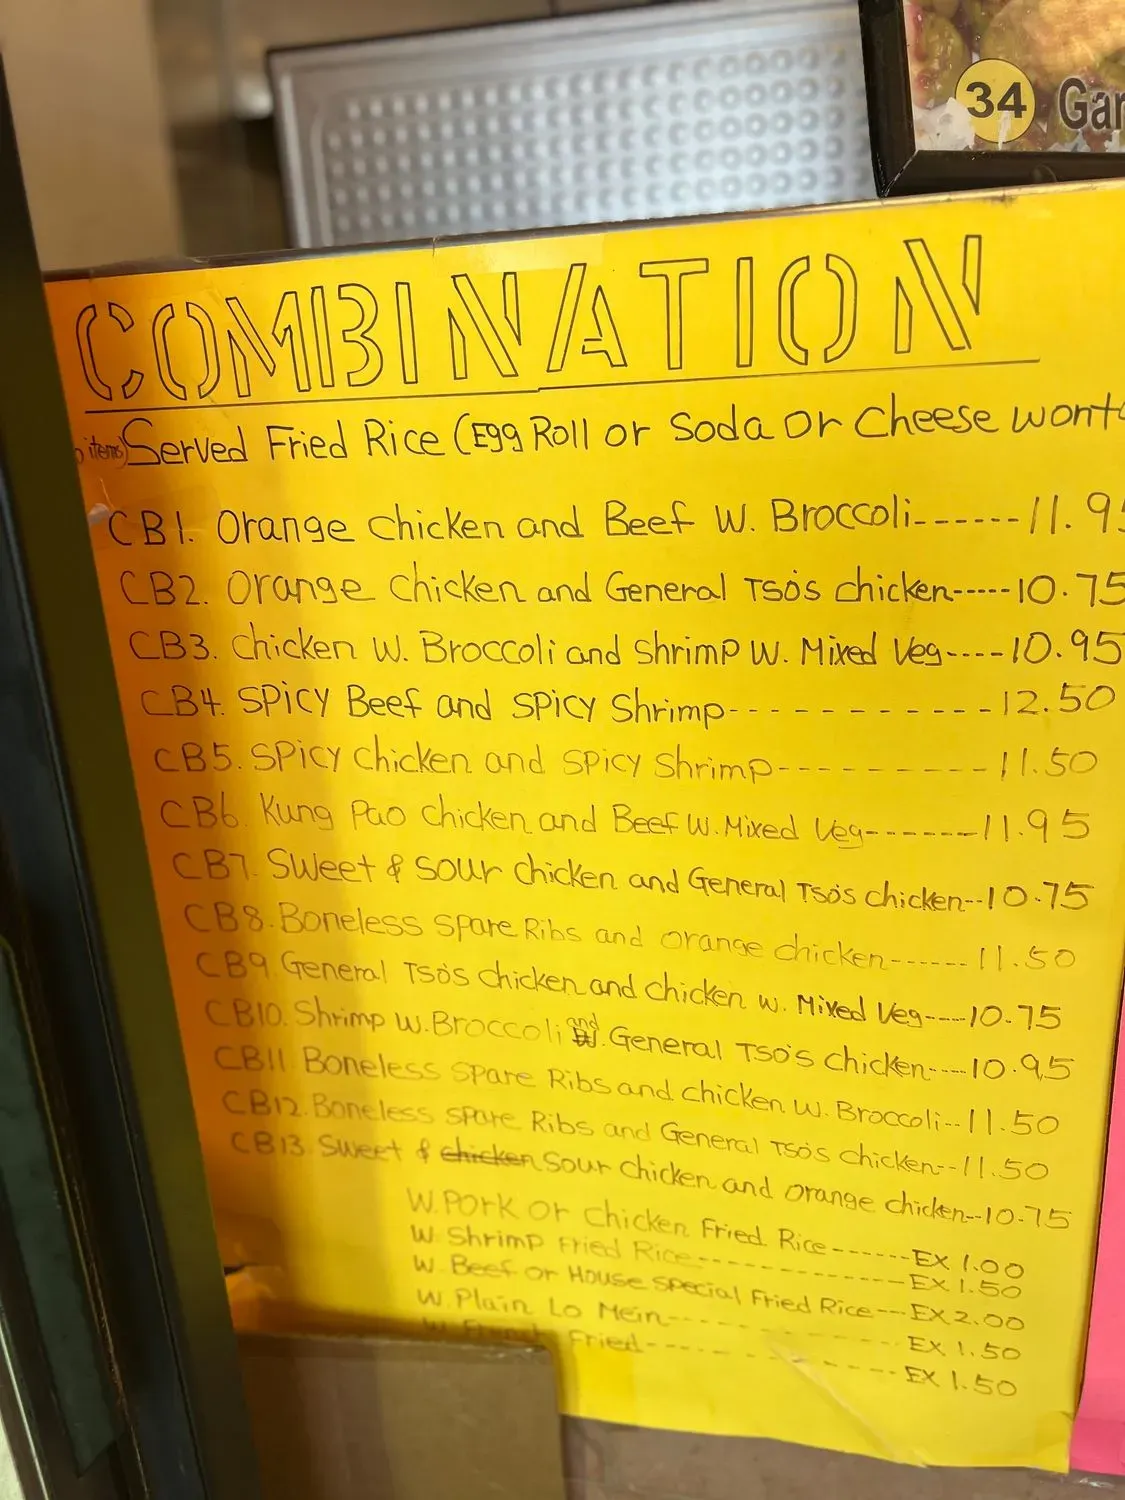 34 Gar
COMBINATION
items) Served Fried Rice (Egg Roll or Soda or Cheese wont
CB1. Orange chicken and Beef W. Broccoli------11.95
CB2. Orange chicken and General TSO'S chicken-----10.75
CB3. chicken W. Broccoli and Shrimp W. Mixed Veg----10.95
CB4. SPicy Beef and SPicy Shrimp-----------12.50
CB5. SPicy chicken and SPicy Shrimp----------11.50
CB6. Kung Pao chicken and Beef W. Mixed Veg-------11.95
CB7. Sweet & Sour chicken and General TSO'S chicken--10.75
CB8. Boneless Spare Ribs and orange chicken------11.50
CB9. General TSO'S chicken and chicken W. Mixed Veg----10.75
CB10. Shrimp W. Broccoli and General TSO'S chicken----10.95
CB11. Boneless Spare Ribs and chicken W. Broccoli--11.50
CB12. Boneless Spare Ribs and General TSO'S chicken--11.50
CB13. Sweet & chicken Sour chicken and orange chicken--10.75
W. Pork or chicken Fried Rice------EX 1.00
W. Shrimp Fried Rice--------------EX 1.50
W. Beef or House Special Fried Rice---EX 2.00
W. Plain Lo Mein-----------EX 1.50
W. French Fried-------------EX 1.50